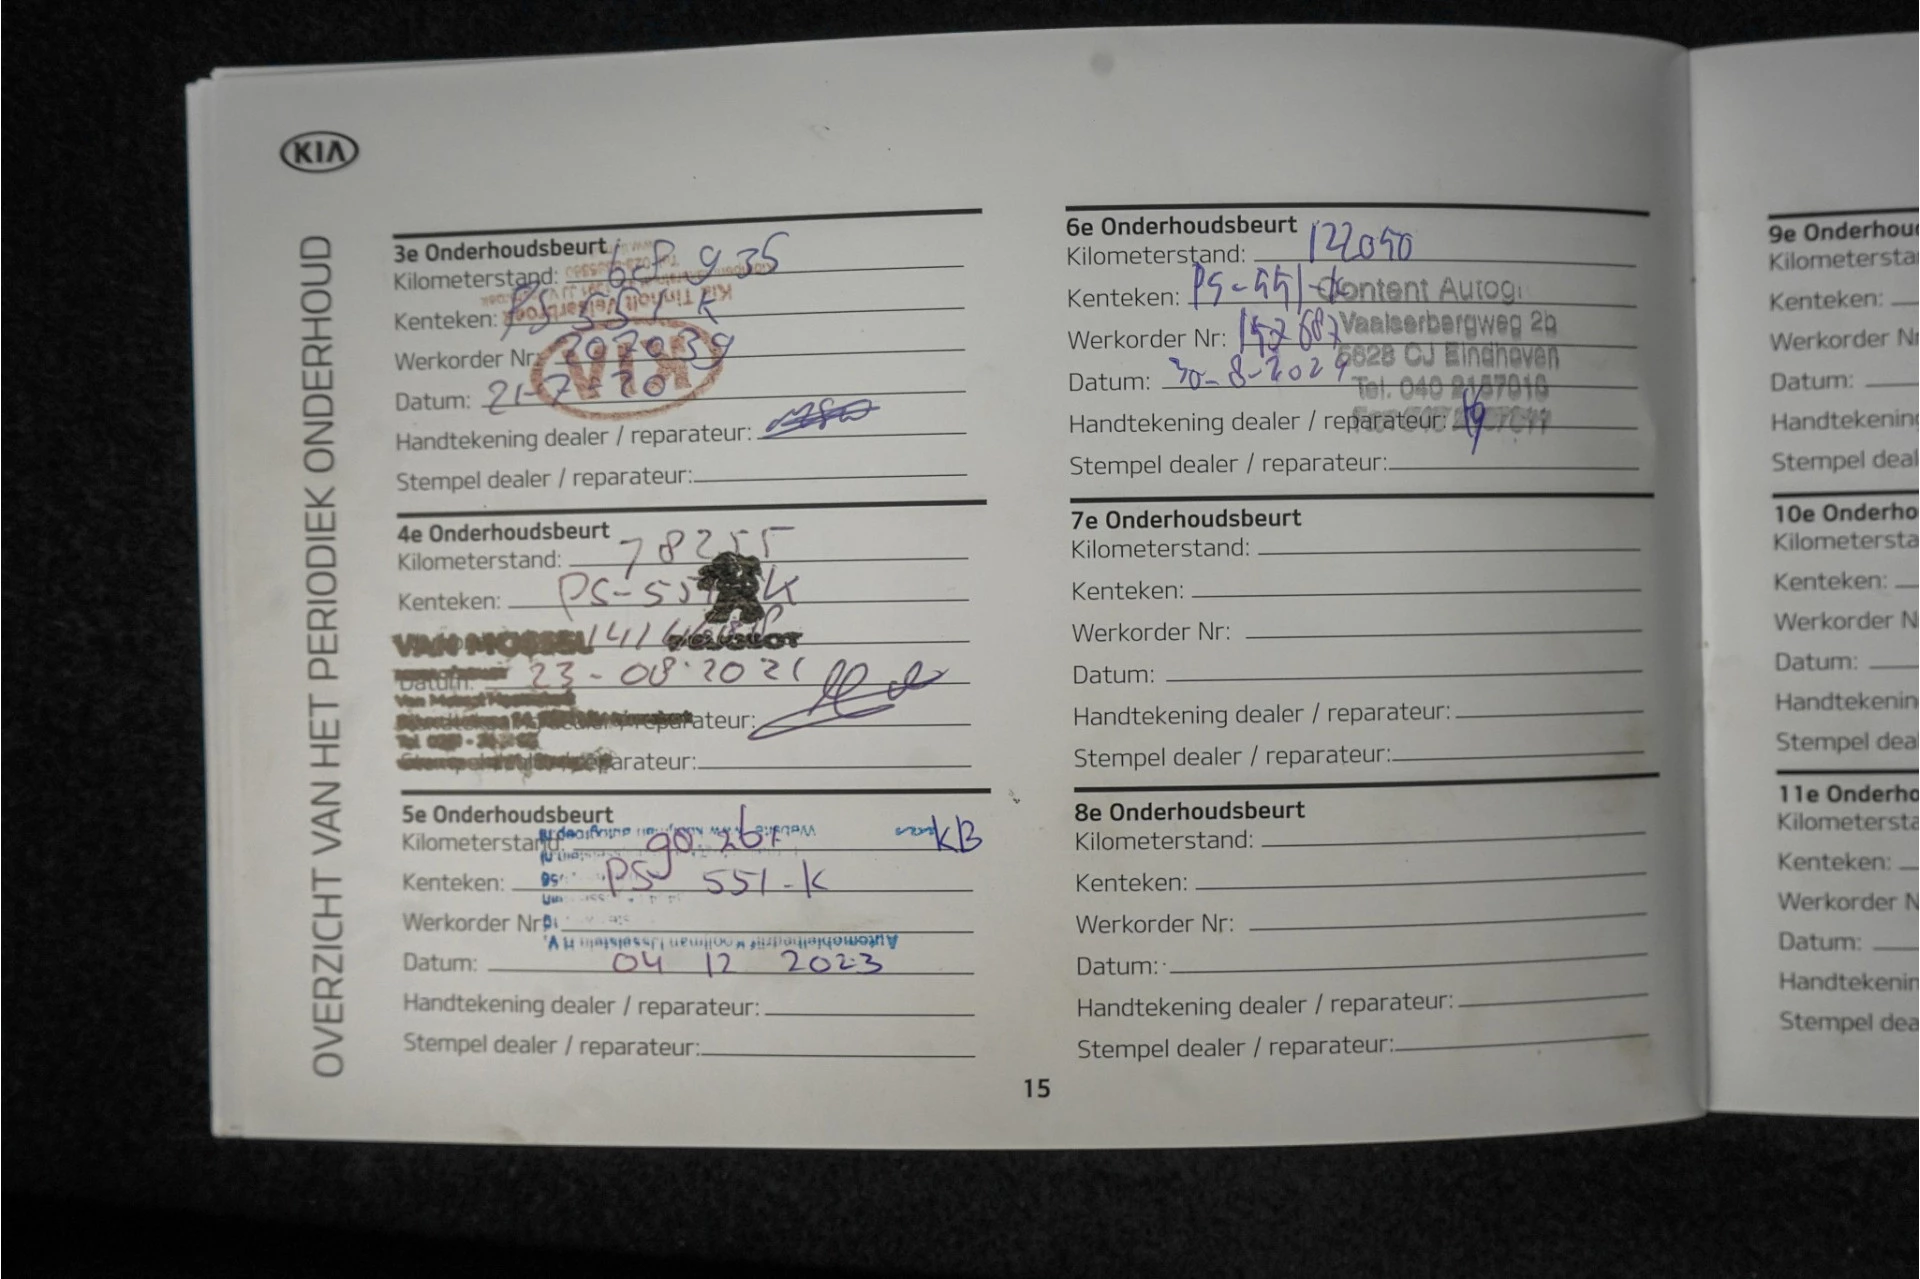 KIA
OVERZICHT VAN HET PERIODIEK ONDERHOUD
3e Onderhoudsbeurt
Kilometerstand: 935
Kenteken: PS 551 K
Kia Tinholt Velserbroek
Werkorder Nr: 207039
KIA
Datum: 21-7-20
Handtekening dealer / reparateur:
Stempel dealer / reparateur:
4e Onderhoudsbeurt
Kilometerstand: 78255
Kenteken: PS-551 K
VAN MOSSEL PEUGEOT
Datum: 23-08-2021
reparateur:
reparateur:
5e Onderhoudsbeurt
Kilometerstand: 90.267 KB
Kenteken: PS 551-K
Werkorder Nr:
Automobielbedrijf Kooijman IJsselstein B.V.
Datum: 04 12 2023
Handtekening dealer / reparateur:
Stempel dealer / reparateur:
6e Onderhoudsbeurt
Kilometerstand: 122050
Kenteken: PS-551-K
Content Autogr
Werkorder Nr: 152687
Vaalserbergweg 2b
5628 CJ Eindhoven
Datum: 30-8-2024
Tel. 040
Handtekening dealer / reparateur:
Stempel dealer / reparateur:
7e Onderhoudsbeurt
Kilometerstand:
Kenteken:
Werkorder Nr:
Datum:
Handtekening dealer / reparateur:
Stempel dealer / reparateur:
8e Onderhoudsbeurt
Kilometerstand:
Kenteken:
Werkorder Nr:
Datum:
Handtekening dealer / reparateur:
Stempel dealer / reparateur:
15
9e Onderhoud
Kilometersta
Kenteken:
Werkorder Nr
Datum:
Handtekening
Stempel deal
10e Onderho
Kilometersta
Kenteken:
Werkorder N
Datum:
Handtekenin
Stempel deal
11e Onderho
Kilometersta
Kenteken:
Werkorder N
Datum:
Handtekenin
Stempel dea